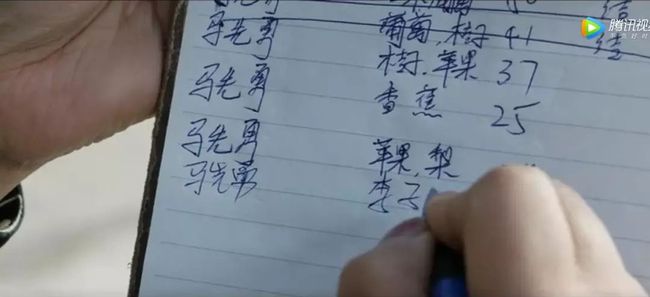 马先勇 葡萄.树 41 结
马先勇 树.苹果 37
马先勇 香蕉 25
马先勇 苹果.梨
马先勇 李子
腾讯视